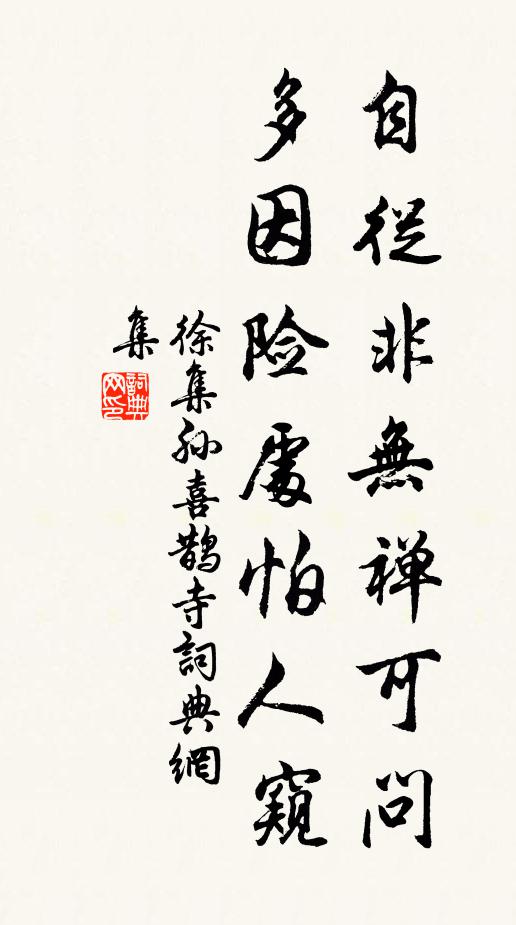 自從非無禅可問
多因险處怕人窺
徐集孙喜鹊寺詞典網
集
詞典
网印